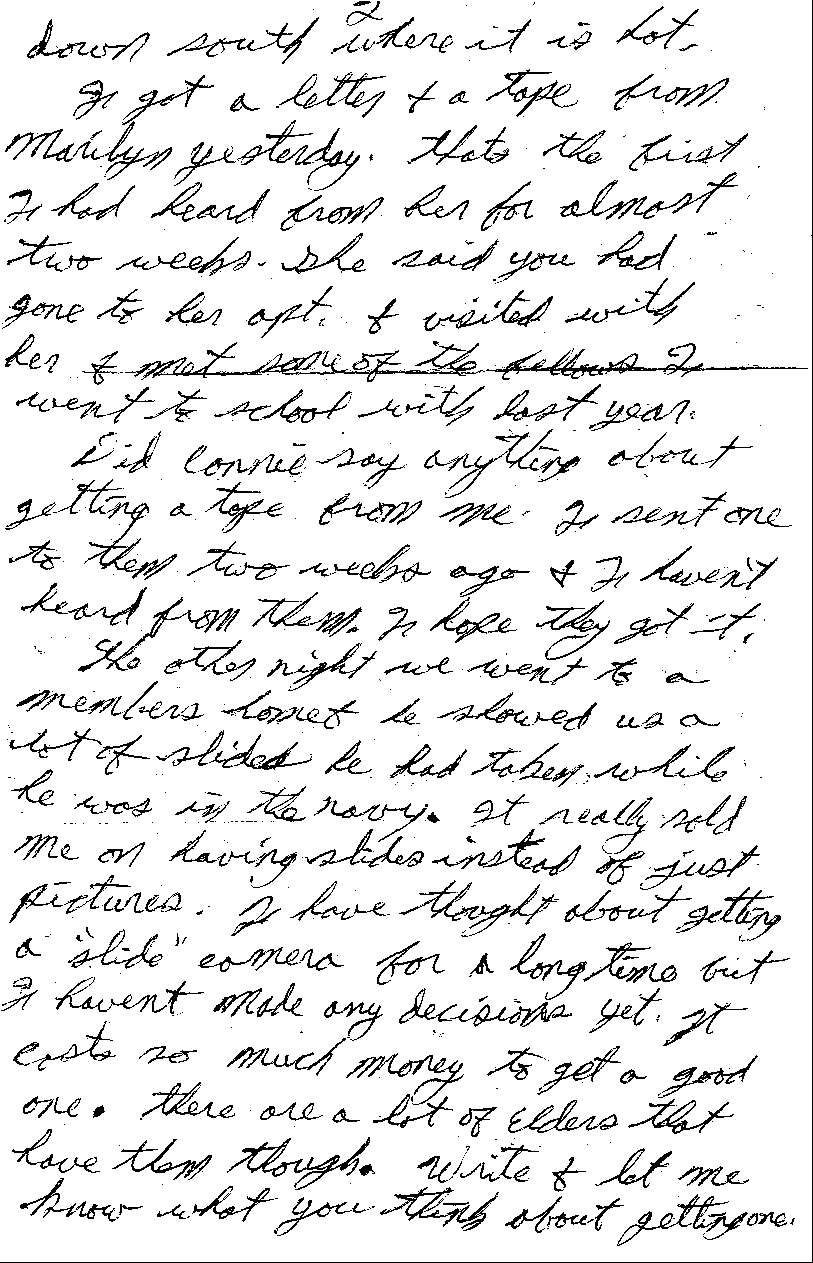 2
down south where it is hot.
I got a letter & a tape from
Marilyn yesterday. Thats the first
I had heard from her for almost
two weeks. She said you had
gone to her apt. & visited with
her & met some of the fellows I
went to school with last year.
Did Connie say anything about
getting a tape from me. I sent one
to them two weeks ago & I haven't
heard from them. I hope they got it.
The other night we went to a
members home & he showed us a
lot of slides he had taken while
he was in the navy. It really sold
me on having slides instead of just
pictures. I have thought about getting
a "slide" camera for a long time but
I havent made any decisions yet. It
costs so much money to get a good
one. There are a lot of Elders that
have them though. Write & let me
know what you think about getting one.